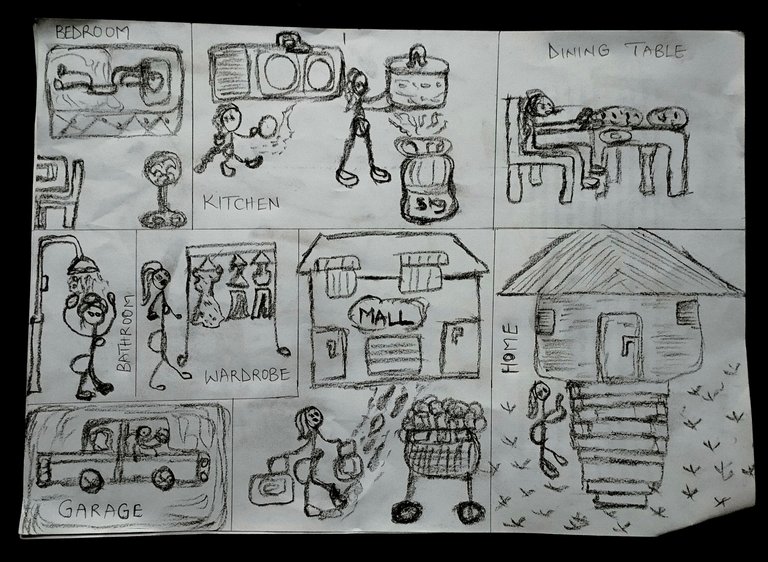 BEDROOM
KITCHEN
5kg
DINING TABLE
BATHROOM
WARDROBE
MALL
HOME
GARAGE